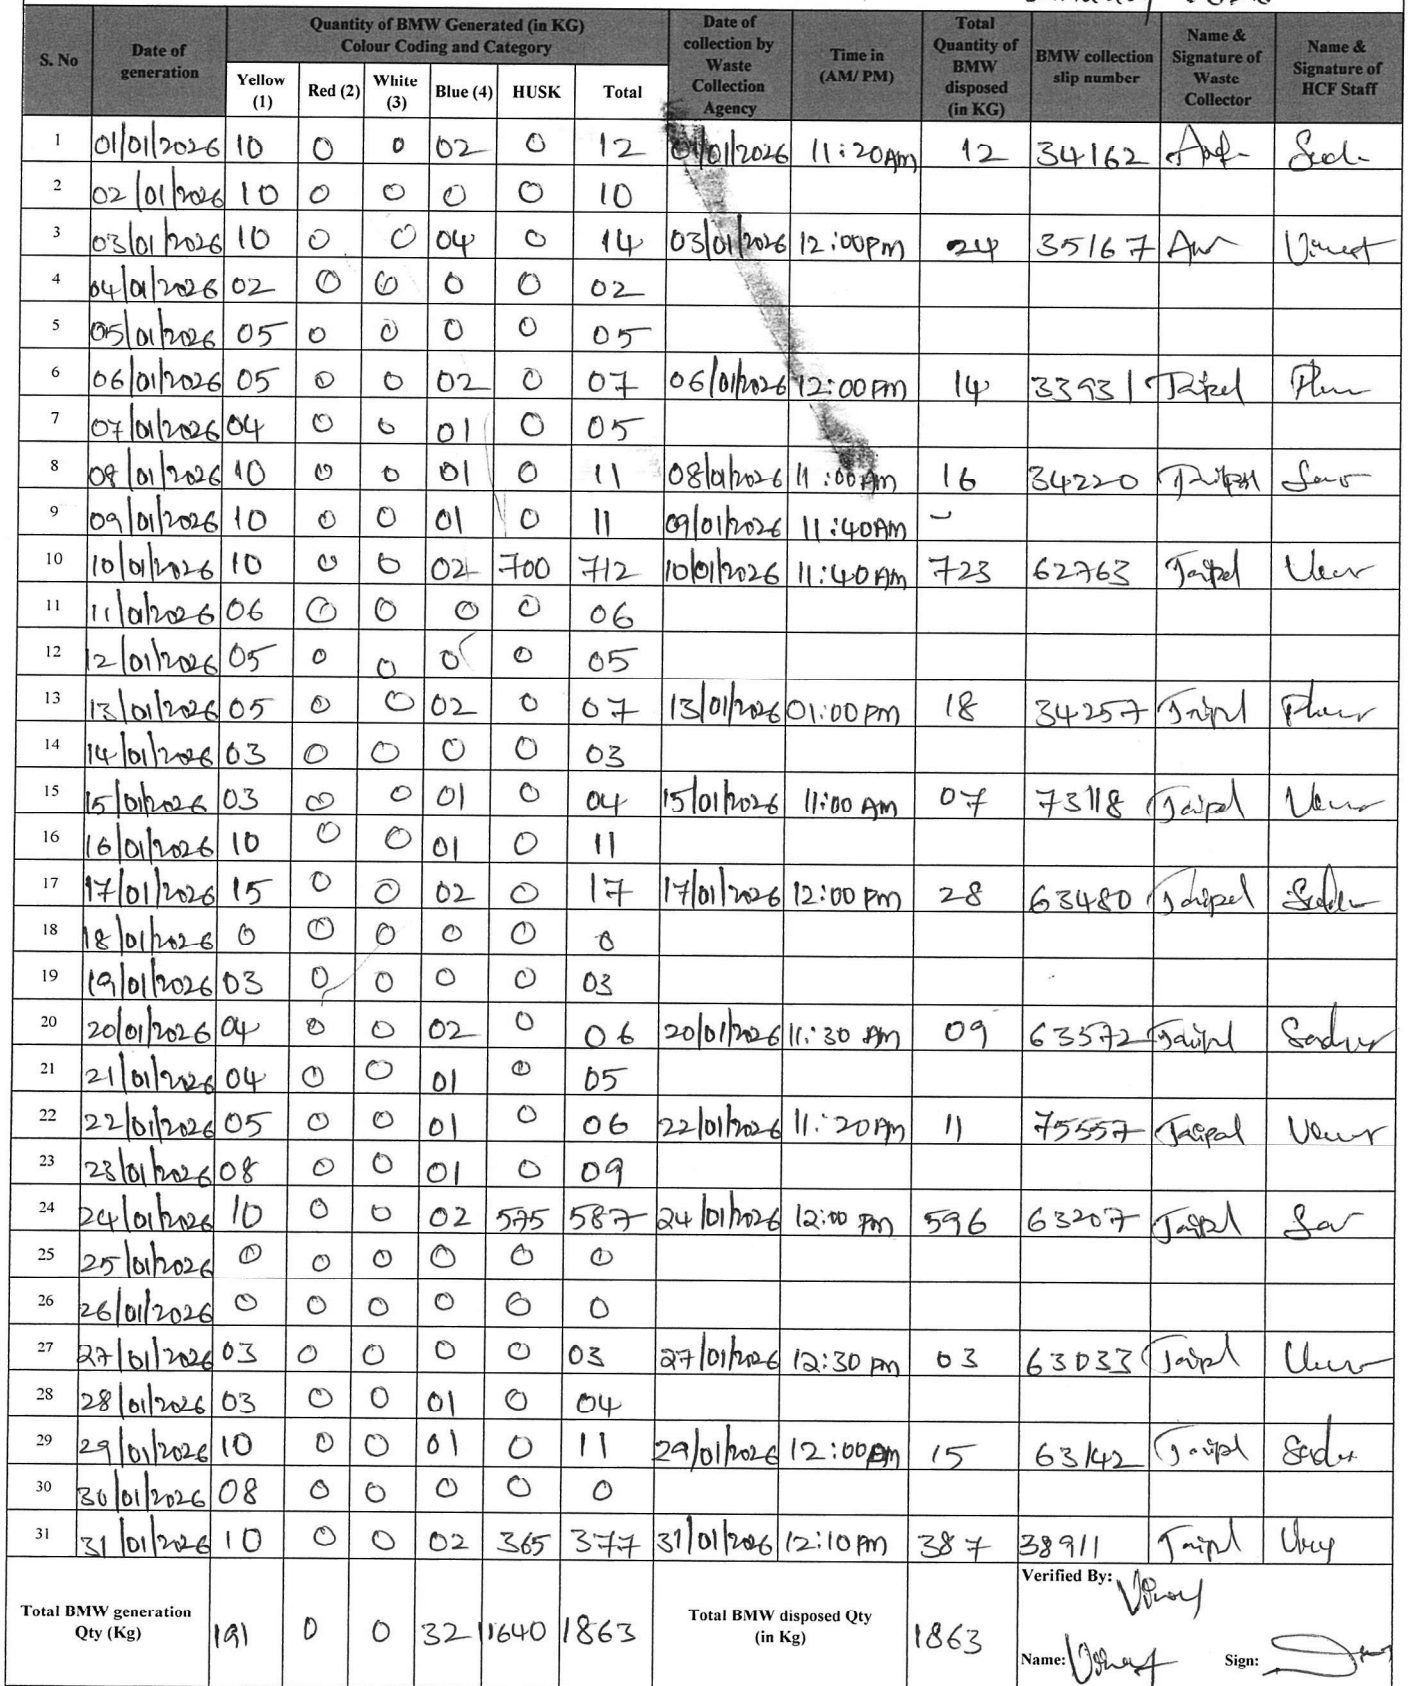 Quantity of BMW Generated (in KG) Colour Coding and Category
S. No | Date of generation | Yellow (1) | Red (2) | White (3) | Blue (4) | HUSK | Total | Date of collection by Waste Collection Agency | Time in (AM/ PM) | Total Quantity of BMW disposed (in KG) | BMW collection slip number | Name & Signature of Waste Collector | Name & Signature of HCF Staff
1 01/01/2026 10 0 0 02 0 12 01/01/2026 11:20Am 12 34162
2 02/01/2026 10 0 0 0 0 10
3 03/01/2026 10 0 0 04 0 14 03/01/2026 12:00pm 24 35167
4 04/01/2026 02 0 0 0 0 02
5 05/01/2026 05 0 0 0 0 05
6 06/01/2026 05 0 0 02 0 07 06/01/2026 12:00pm 14 33931
7 07/01/2026 04 0 0 01 0 05
8 08/01/2026 10 0 0 01 0 11 08/01/2026 11:00Am 16 34220
9 09/01/2026 10 0 0 01 0 11 09/01/2026 11:40AM -
10 10/01/2026 10 0 0 02 700 712 10/01/2026 11:40Am 723 62763
11 11/01/2026 06 0 0 0 0 06
12 12/01/2026 05 0 0 0 0 05
13 13/01/2026 05 0 0 02 0 07 13/01/2026 01:00pm 18 34257
14 14/01/2026 03 0 0 0 0 03
15 15/01/2026 03 0 0 01 0 04 15/01/2026 11:00 Am 07 73118 Jaipal
16 16/01/2026 10 0 0 01 0 11
17 17/01/2026 15 0 0 02 0 17 17/01/2026 12:00 pm 28 63480 Jaipal
18 18/01/2026 0 0 0 0 0 0
19 19/01/2026 03 0 0 0 0 03
20 20/01/2026 04 0 0 02 0 06 20/01/2026 11:30 Am 09 63572
21 21/01/2026 04 0 0 01 0 05
22 22/01/2026 05 0 0 01 0 06 22/01/2026 11:20Am 11 75557 Jaipal
23 23/01/2026 08 0 0 01 0 09
24 24/01/2026 10 0 0 02 575 587 24/01/2026 12:00 pm 596 63207
25 25/01/2026 0 0 0 0 0 0
26 26/01/2026 0 0 0 0 0 0
27 27/01/2026 03 0 0 0 0 03 27/01/2026 12:30 pm 03 63033
28 28/01/2026 03 0 0 01 0 04
29 29/01/2026 10 0 0 01 0 11 29/01/2026 12:00pm 15 63142
30 30/01/2026 08 0 0 0 0 0
31 31/01/2026 10 0 0 02 365 377 31/01/2026 12:10pm 387 38911
Total BMW generation Qty (Kg) 191 0 0 32 1640 1863 Total BMW disposed Qty (in Kg) 1863
Verified By:
Name: Sign: